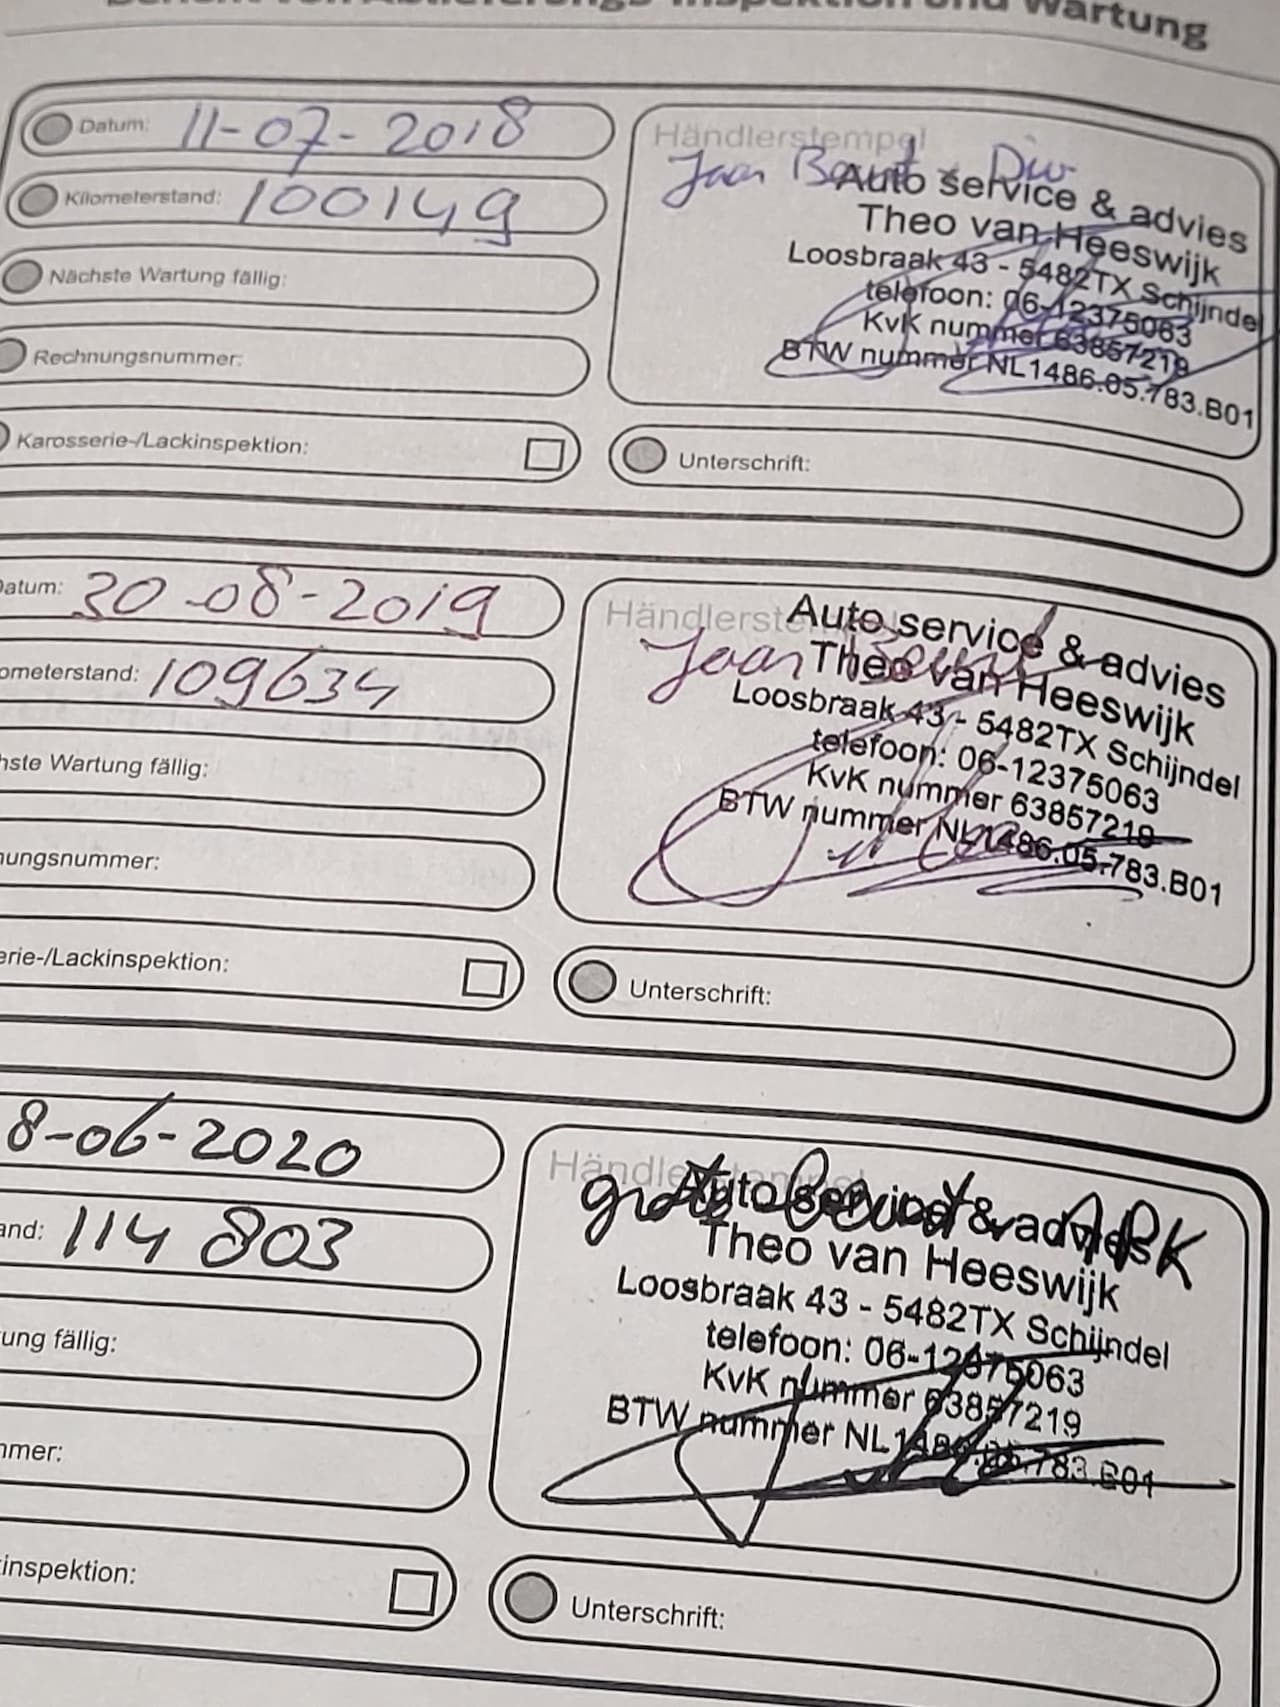 Bericht von Ablieferungs-Inspektion und Wartung
Datum: 11-07-2018
Kilometerstand: 100149
Nächste Wartung fällig:
Rechnungsnummer:
Karosserie-/Lackinspektion:
Händlerstempel
Jaar
Auto service & advies
Theo van Heeswijk
Loosbraak 43 - 5482TX Schijndel
telefoon: 06-12375063
KvK nummer 63857219
BTW nummer NL1486.05.783.B01
Unterschrift:
Datum: 30-08-2019
ometerstand: 109634
hste Wartung fällig:
nungsnummer:
erie-/Lackinspektion:
Händlerste
Auto service & advies
Jaar
Theo van Heeswijk
Loosbraak 43 - 5482TX Schijndel
telefoon: 06-12375063
KvK nummer 63857219
BTW nummer NL1486.05.783.B01
Unterschrift:
8-06-2020
and: 114 803
ung fällig:
mmer:
inspektion:
Händlerstempel
grote beurt & APK
Auto service & advies
Theo van Heeswijk
Loosbraak 43 - 5482TX Schijndel
telefoon: 06-12375063
KvK nummer 63857219
BTW nummer NL1486.05.783.B01
Unterschrift: